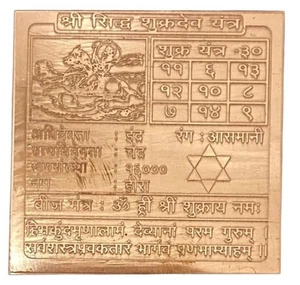 श्री सिद्ध शुक्रदेव यंत्र
शुक्र यंत्र -३०
११ ६ १३
१२ १० ८
७ १४ ९
: इंद्र रंग : आसमानी
: चंद्र
: हीरा
बीज मंत्र : ॐ ह्रीं श्रीं शुक्राय नमः
हिमकुंदमृणालामं. देव्यानां परमं गुरुम्
सर्वशस्त्रप्रवक्तारं भार्गवं प्रणमाम्याहम् ||